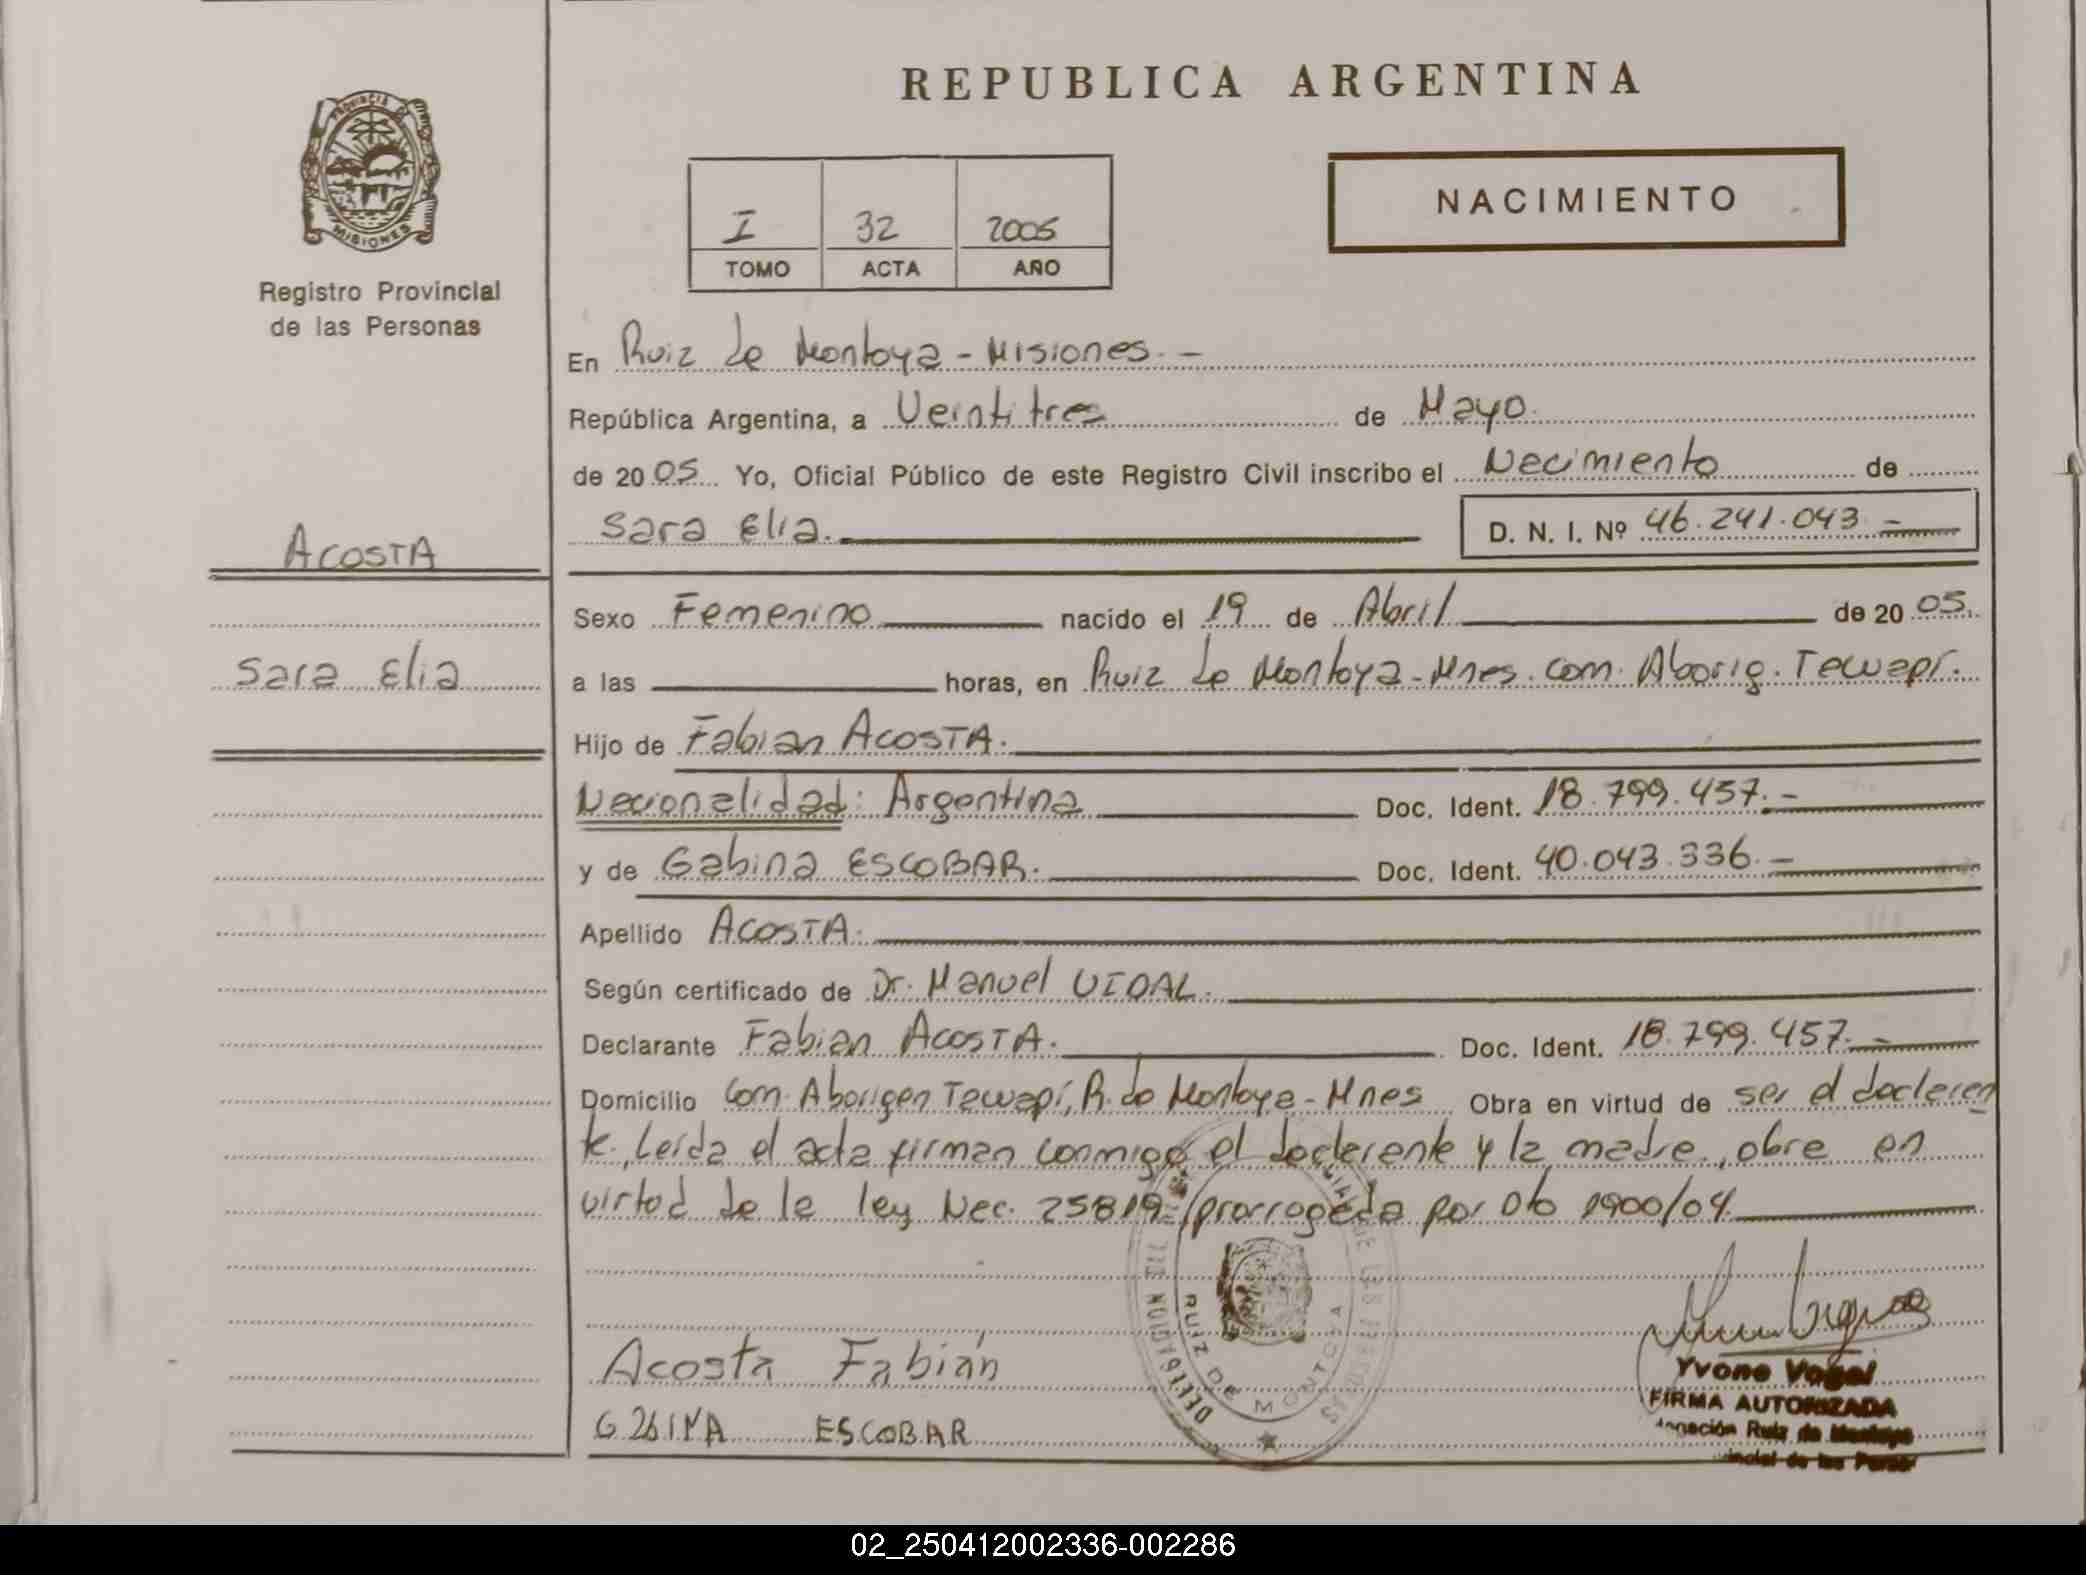 REPUBLICA ARGENTINA
PROVINCIA DE
MISIONES
Registro Provincial
de las Personas
NACIMIENTO
I 32 2005
TOMO ACTA AÑO
En Ruiz de Montoya - Misiones. -
República Argentina, a Veintitres de Mayo.
de 2005 Yo, Oficial Público de este Registro Civil inscribo el Nacimiento de
Sara Elia. D. N. I. Nº 46.241.043 -
ACOSTA
Sara Elia
Sexo Femenino nacido el 19 de Abril de 2005.
a las horas, en Ruiz de Montoya - Mnes. Com. Aborig. Tewapí.
Hijo de Fabian ACOSTA.
Nacionalidad: Argentina Doc. Ident. 18.799.457. -
y de Gabina ESCOBAR. Doc. Ident. 40.043.336. -
Apellido ACOSTA.
Según certificado de Dr. Manuel VIDAL.
Declarante Fabian ACOSTA. Doc. Ident. 18.799.457. -
Domicilio Com. Aborigen Tewapí, R. de Montoya - Mnes Obra en virtud de ser el declaran
te. Leída el acta firman conmigo el declarante y la madre, obre en
virtud de la ley Nac. 25819 prorrogada por Dto 1900/04.
Acosta Fabián
GabINA ESCOBAR
DELEGACION
RUIZ DE MONTOYA
Yvone Vogel
FIRMA AUTORIZADA
Ruiz de Montoya
de las
02_250412002336-002286